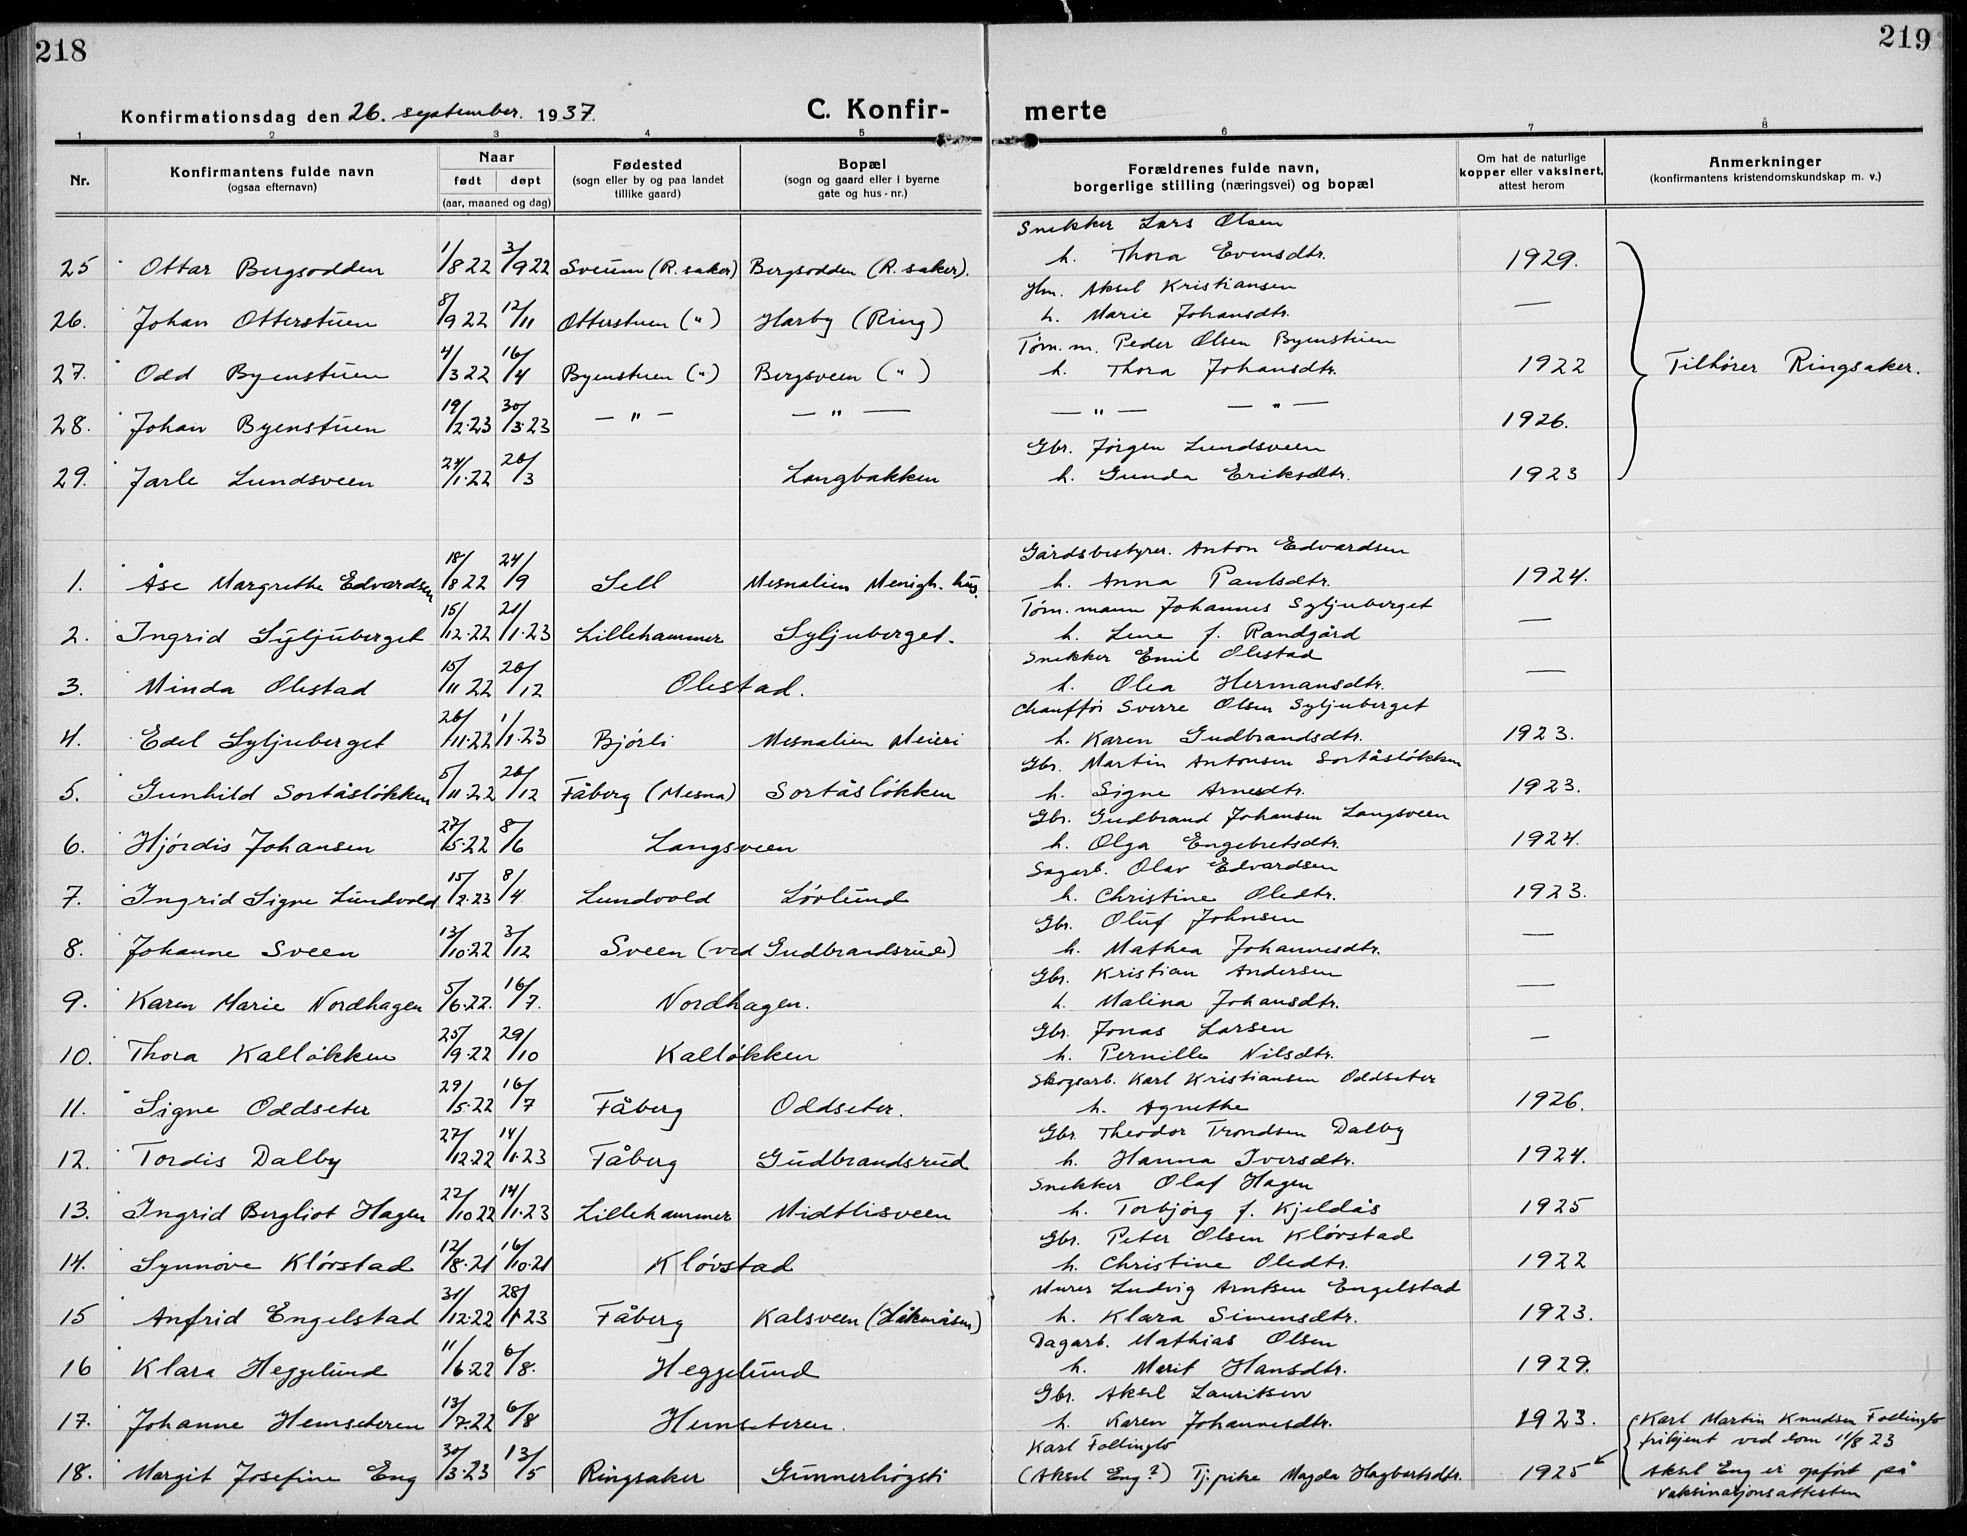 218
219
Konfirmationsdag den 26. september. 1937.
C. Konfir-
merte
1 2 3 4 5 6 7 8
Nr.
Konfirmantens fulde navn
(ogsaa efternavn)
Naar
født døpt
(aar, maaned og dag)
Fødested
(sogn eller by og paa landet
tillike gaard)
Bopæl
(sogn og gaard eller i byerne
gate og hus - nr.)
Forældrenes fulde navn,
borgerlige stilling (næringsvei) og bopæl
Om hat de naturlige
kopper eller vaksinert,
attest herom
Anmerkninger
(konfirmantens kristendomskundskap m. v.)
Snekker Lars Olsen
25 Ottar Bergsodden 1/8 22 3/9 22 Sveum (R.saker) Bergsodden (R.saker). h. Thora Evensdtr. 1929.
Hm. Aksel Kristiansen
26. Johan Otterstuen 8/9 22 12/11 Otterstuen (") Harby (Ring) h. Marie Johansdtr. —
Tøm.m. Peder Olsen Byenstuen
27. Odd Byenstuen 4/3 22 16/4 Byenstuen (") Bergsveen (") h. Thora Johansdtr. 1922 Tilhører Ringsaker.
28. Johan Byenstuen 19/2.23 30/3.23 — " — — " — — " — — " — 1926.
Gbr. Jørgen Lundsveen
29. Jarle Lundsveen 24/1.22 26/3 Langbakken h. Gunda Eriksdtr. 1923
Gårdsbestyrer. Anton Edvardsen
1. Åse Margrethe Edvardsen 18/8 22 24/9 Sell Mesnalien Menigh. hus. h. Anna Paulsdtr. 1924.
Tøm.mann Johannes Syljuberget
2. Ingrid Syljuberget 15/12.22 21/1.23 Lillehammer Syljuberget. h. Lene f. Randgård —
Snekker Emil Olestad
3. Minda Olestad 15/11 22 26/12 Olestad. h. Olea Hermansdtr. —
Chauffør Sverre Olsen Syljuberget
4. Edel Syljuberget 26/11.22 1/1.23 Bjørli Mesnalien Meieri h. Karen Gudbrandsdtr. 1923.
Gbr. Martin Antonsen Sortåsløkken
5. Gunhild Sortåsløkken 5/11.22 26/12 Fåberg (Mesna) Sortåsløkken h. Signe Arnesdtr. 1923.
Gbr. Gudbrand Johansen Langsveen
6. Hjørdis Johansen 27/5.22 8/6 Langsveen h. Olga Engebretsdtr. 1924.
Sagarb. Olav Edvardsen
7. Ingrid Signe Lundvold 15/2.23 8/4 Lundvold Løvlund h. Christine Oledtr. 1923.
Gbr. Oluf Johnsen
8. Johanne Sveen 13/10.22 3/12 Sveen (ved Gudbrandsrud) h. Mathea Johannesdtr. —
Gbr. Kristian Andersen
9. Karen Marie Nordhagen 5/6.22. 16/7. Nordhagen. h. Malina Johansdtr. —
Gbr. Jonas Larsen
10. Thora Kalløkken 25/9.22 29/10 Kalløkken h. Pernille Nilsdtr. —
Skogsarb. Karl Kristiansen Oddseter
11. Signe Oddseter 29/5.22 16/7 Fåberg Oddseter. h. Agnethe 1926.
Gbr. Theodor Trondsen Dalby
12. Tordis Dalby 27/12.22 14/1.23 Fåberg Gudbrandsrud h. Hanna Iversdtr. 1924.
Snekker Olaf Hagen
13. Ingrid Bergliot Hagen 22/10 22 14/1.23 Lillehammer Midtlisveen h. Torbjørg f. Kjeldås 1925
Gbr. Peter Olsen Kløvstad
14. Synnøve Kløvstad 12/8.21 16/10.21 Kløvstad h. Christine Oledtr. 1922
Murer Ludvig Arntsen Engelstad
15 Anfrid Engelstad 31/12.22 28/1 23 Fåberg Kalsveen h. Klara Simensdtr. 1923.
Dagarb. Mathias Olsen
16 Klara Heggelund 11/6.22 6/8. Heggelund h. Marit Hansdtr. 1929.
Gbr. Aksel Lauritsen
17. Johanne Hemseteren 13/7.22 6/8 Hemseteren. h. Karen Johannesdtr. 1923. Karl Martin Knudsen Follinglo
Karl Follinglo frikjent ved dom 11/8 23
18. Margit Josefine Eng 30/3.23 13/5 Ringsaker Gunnerhøgsti (Aksel Eng?) Tj.pike Magda Hagbartsdtr. 1925 Aksel Eng er opført på
vaksinasjonsattesten